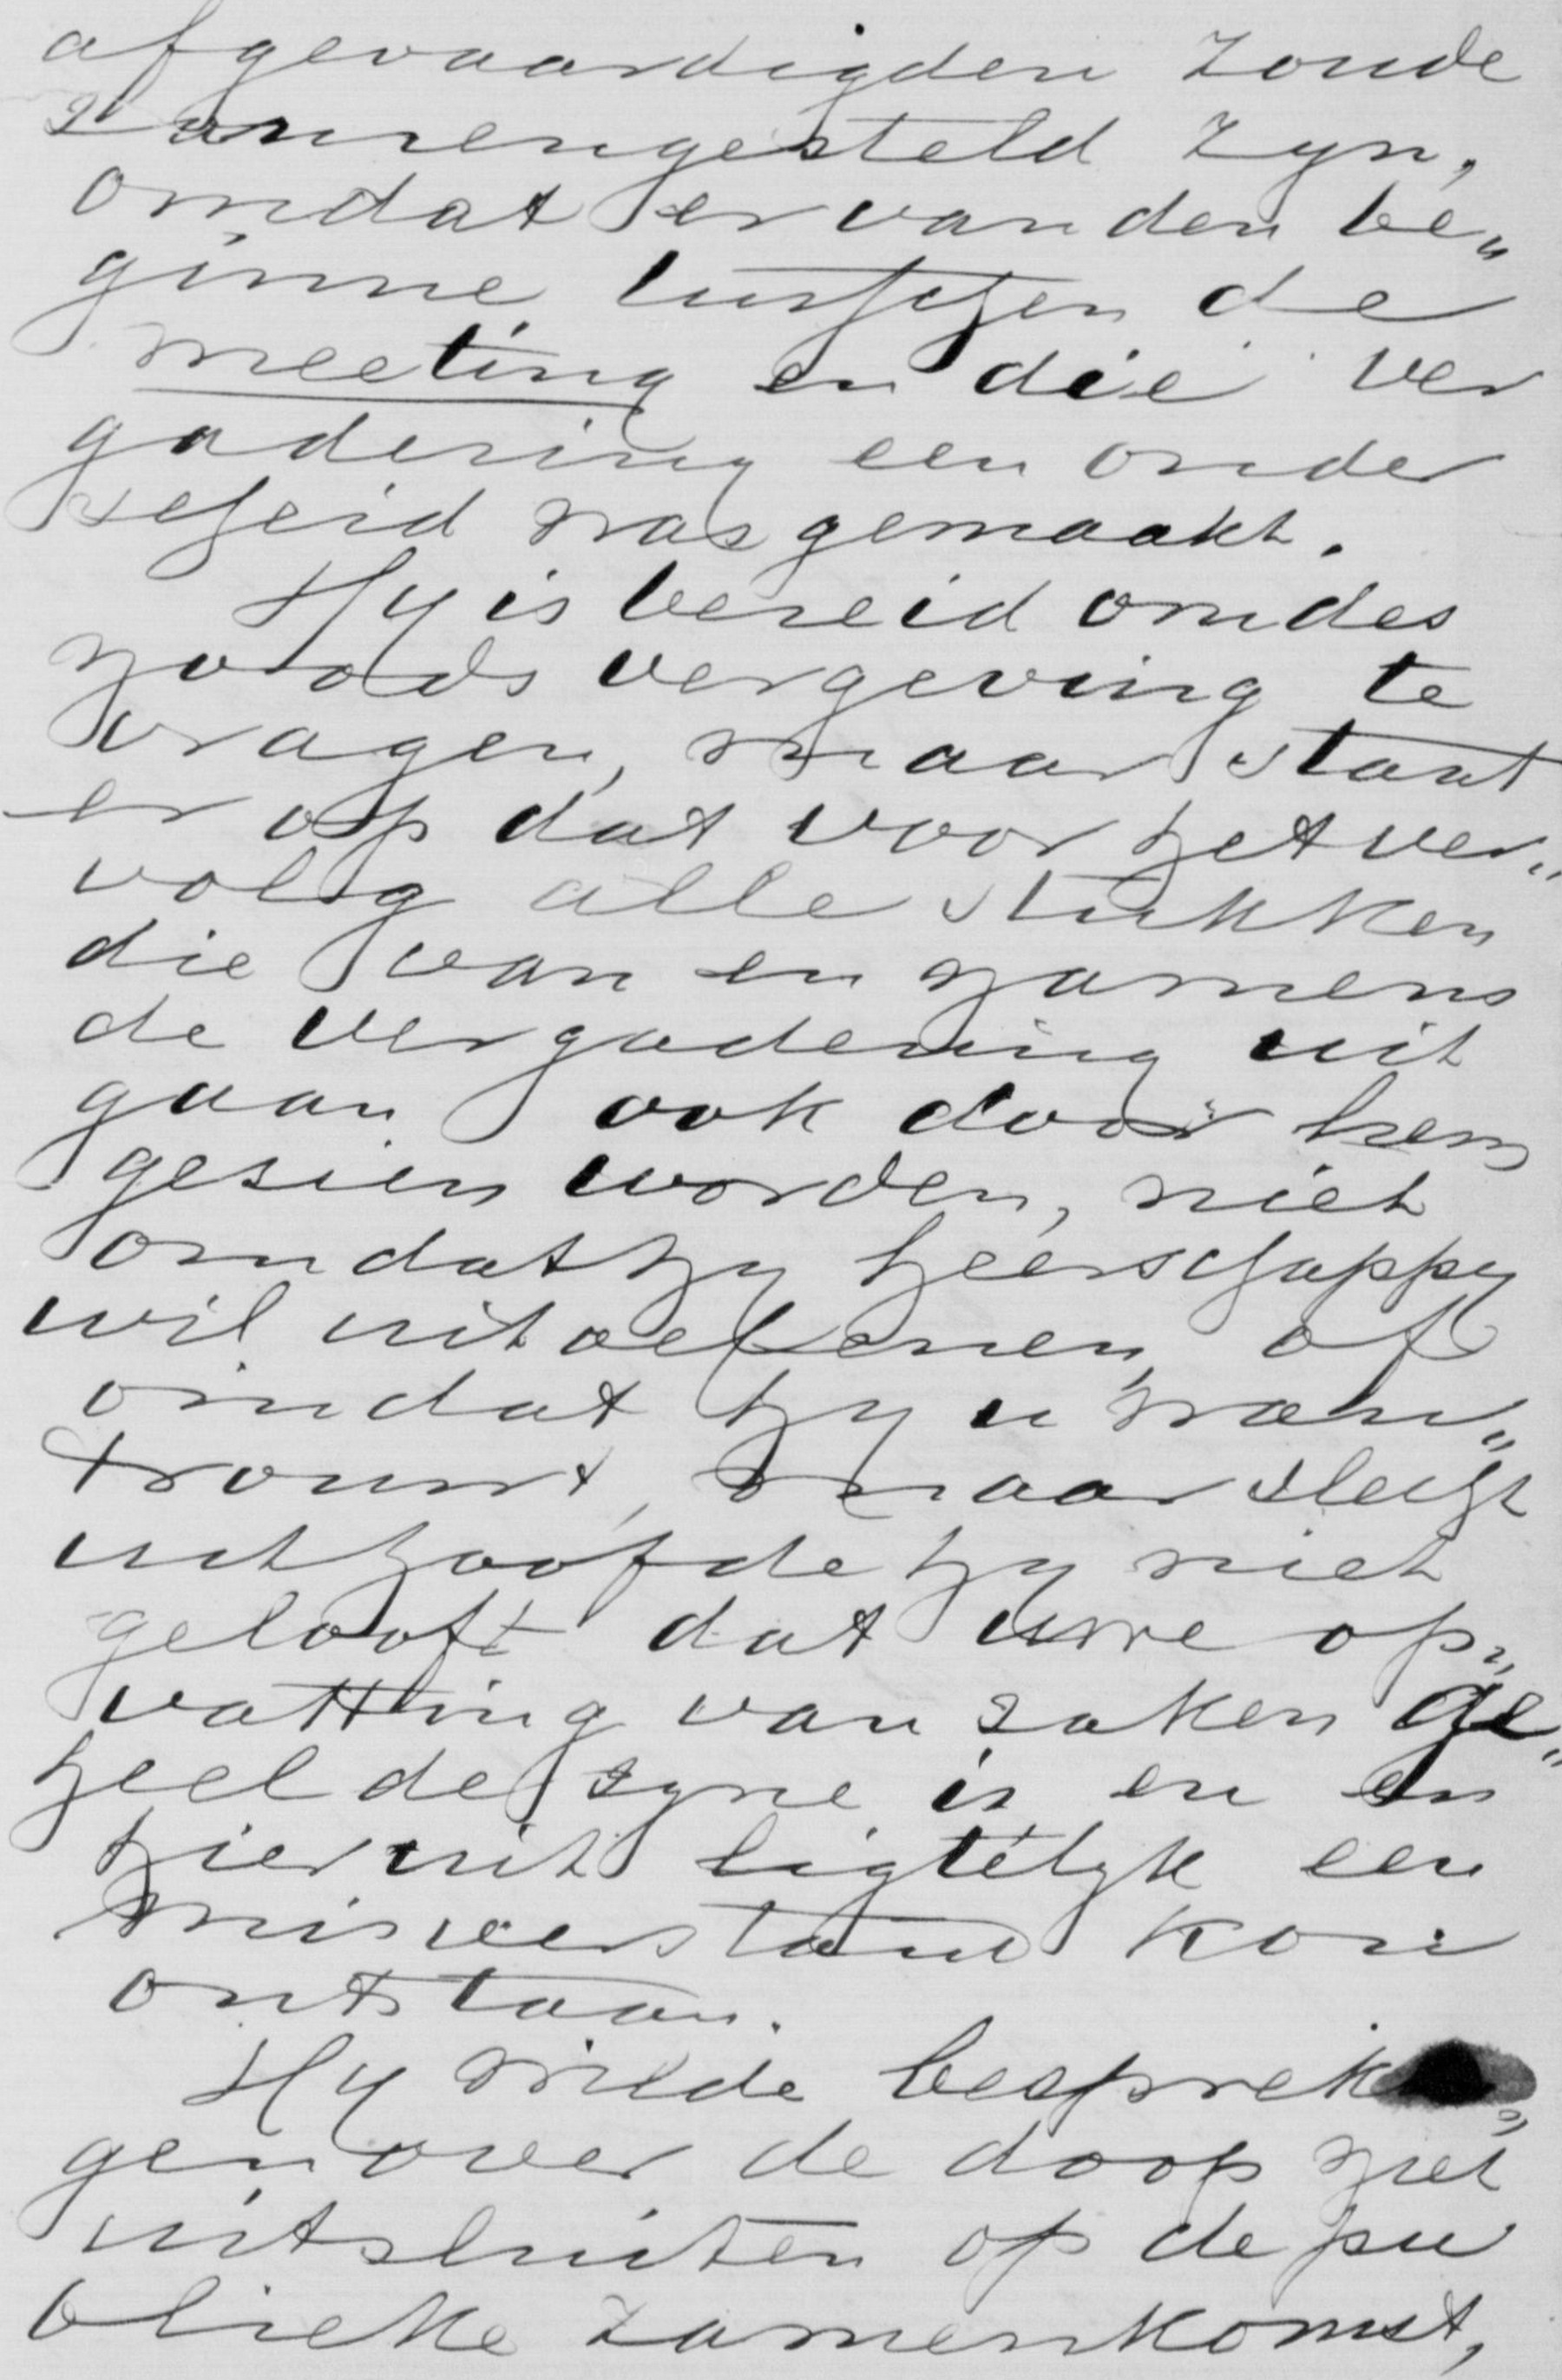 afgevaardigden zoude
zamengesteld zyn,
omdat er van den be„
ginne tusschen de
meeting en die ver
gadering een onder
scheid was gemaakt.
Hy is bereid om des
noods vergeving te
vragen, maar staat
er op dat voor het ver„
volg alle stukken
die van en namens
de vergadering uit
gaan ook door hem
gesien worden, niet
omdat hy heerschappy
wil uitoefenen, of
omdat hy u wan„
trouwt, maar slechts
uit hoofde hy niet
gelooft dat uwe op„
vatting van saken ge„
heel de syne is en en
hieruit ligtelyk een
misverstand kon
ontstaan.
Hy wilde besprek
gen over de doop niet
uitsluiten op de pu
blieke zamenkomst,